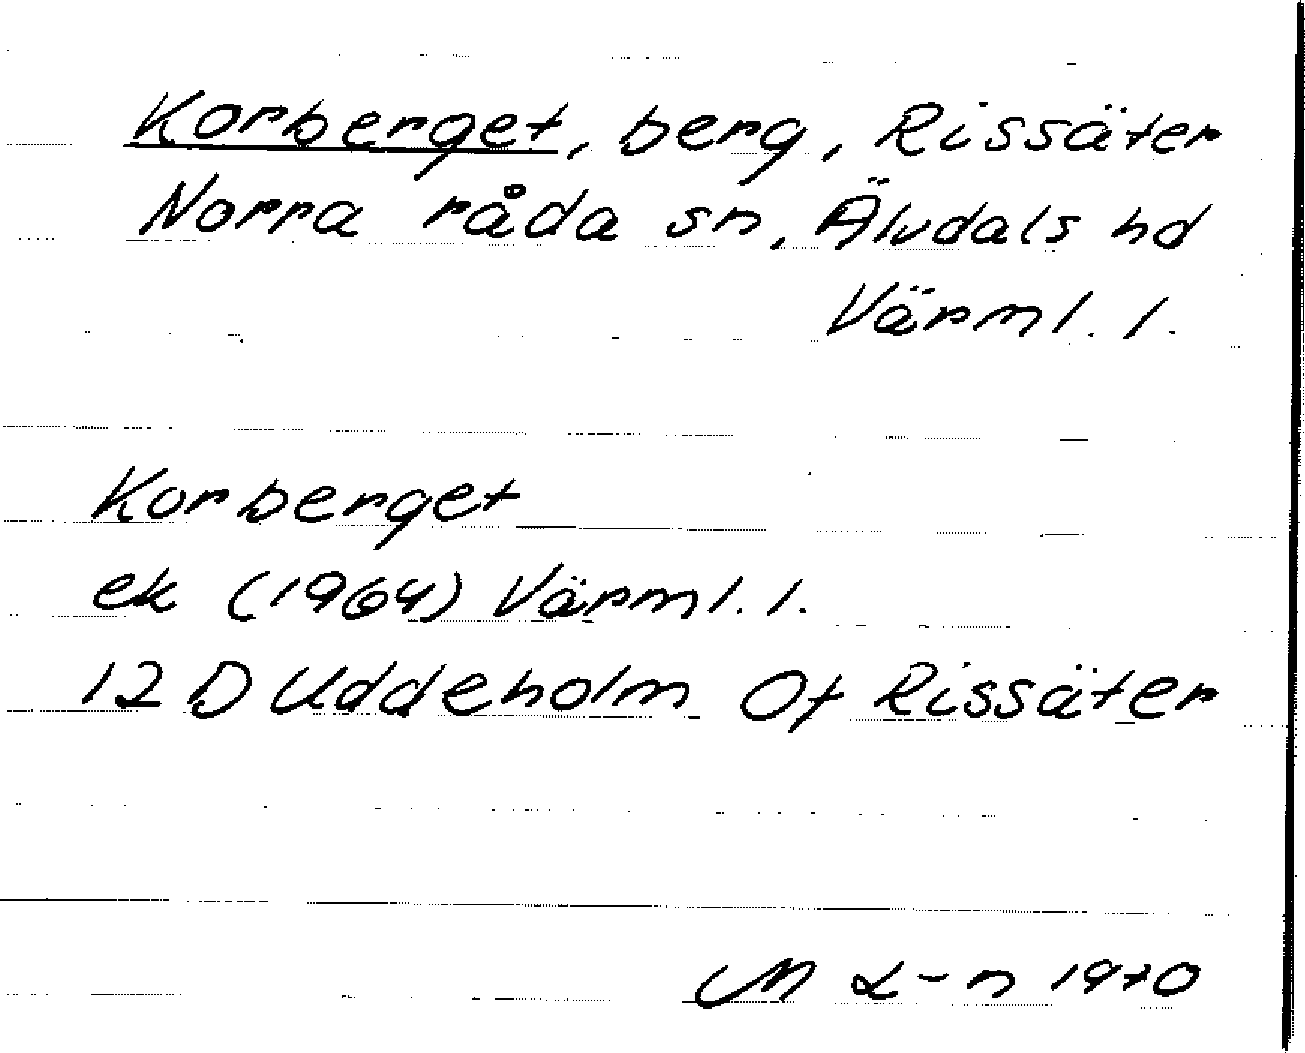 Korberget, berg, Rissäter
Norra råda sn, Älvdals hd
Värml. l.
Korberget
ek (1964) Värml. l.
12 D Uddeholm Of Rissäter
M L-n 1970